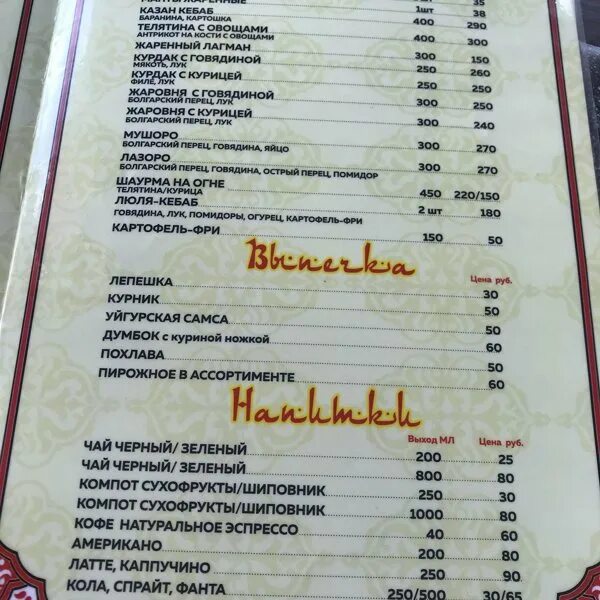 МАНТЫ ЖАРЕННЫЕ 35
КАЗАН КЕБАБ 1шт 38
БАРАНИНА, КАРТОШКА
ТЕЛЯТИНА С ОВОЩАМИ 400 290
АНТРИКОТ НА КОСТИ С ОВОЩАМИ
ЖАРЕННЫЙ ЛАГМАН 400 300
КУРДАК С ГОВЯДИНОЙ 300 150
МЯКОТЬ, ЛУК
КУРДАК С КУРИЦЕЙ 250 260
ФИЛЕ, ЛУК
ЖАРОВНЯ С ГОВЯДИНОЙ 250 250
БОЛГАРСКИЙ ПЕРЕЦ, ЛУК
ЖАРОВНЯ С КУРИЦЕЙ 300 250
БОЛГАРСКИЙ ПЕРЕЦ, ЛУК 300 240
МУШОРО
БОЛГАРСКИЙ ПЕРЕЦ, ГОВЯДИНА, ЯЙЦО 300 270
ЛАЗОРО
БОЛГАРСКИЙ ПЕРЕЦ, ГОВЯДИНА, ОСТРЫЙ ПЕРЕЦ, ПОМИДОР 300 270
ШАУРМА НА ОГНЕ
ТЕЛЯТИНА/КУРИЦА 450 220/150
ЛЮЛЯ-КЕБАБ
ГОВЯДИНА, ЛУК, ПОМИДОРЫ, ОГУРЕЦ, КАРТОФЕЛЬ-ФРИ 2 шт 180
КАРТОФЕЛЬ-ФРИ 150 50
Выпечка
Цена руб.
ЛЕПЕШКА 30
КУРНИК 50
УЙГУРСКАЯ САМСА 50
ДУМБОК с куриной ножкой 60
ПОХЛАВА 50
ПИРОЖНОЕ В АССОРТИМЕНТЕ 60
Напитки
Выход МЛ Цена руб.
ЧАЙ ЧЕРНЫЙ/ ЗЕЛЕНЫЙ 200 25
ЧАЙ ЧЕРНЫЙ/ ЗЕЛЕНЫЙ 800 80
КОМПОТ СУХОФРУКТЫ/ШИПОВНИК 250 30
КОМПОТ СУХОФРУКТЫ/ШИПОВНИК 1000 80
КОФЕ НАТУРАЛЬНОЕ ЭСПРЕССО 40 60
АМЕРИКАНО 200 80
ЛАТТЕ, КАППУЧИНО 250 90
КОЛА, СПРАЙТ, ФАНТА 250/500 30/65